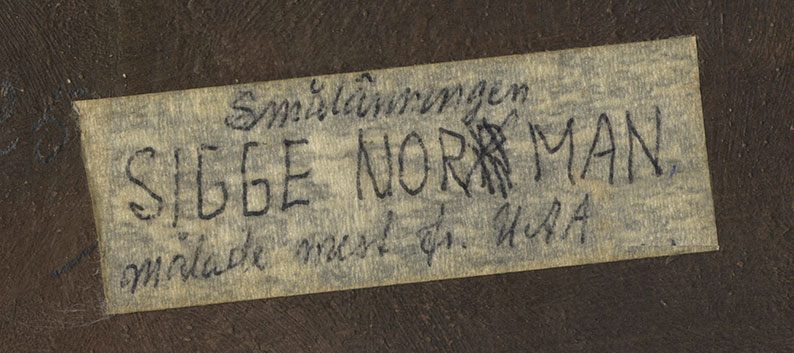 Smålänningen
SIGGE NORMAN.
målade mest fr. USA